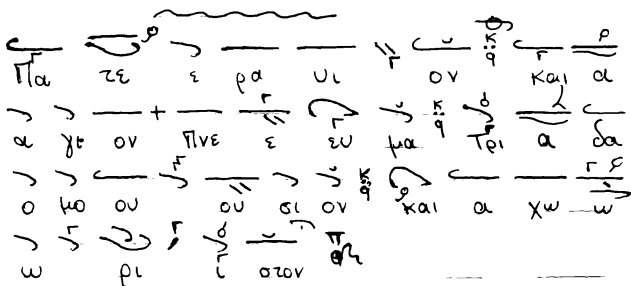 Πα τε ε ρα υι ον και α
α γι ον + Πνε ε ευ μα Τρι α δα
ο μο ου ου σι ον και α χω ω
ω ρι ι στον